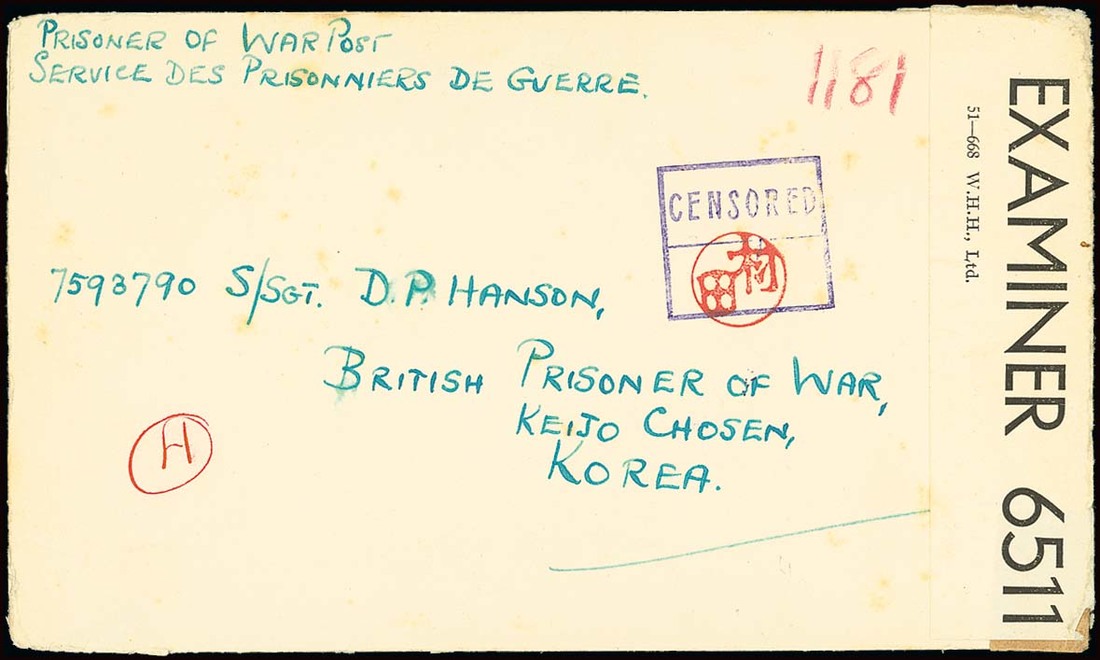 PRISONER OF WAR POST
SERVICE DES PRISONNIERS DE GUERRE.
1181
CENSORED
村田
7593790 S/SGT. D.P. HANSON,
BRITISH PRISONER OF WAR,
KEIJO CHOSEN,
KOREA.
H
EXAMINER 6511
51—668 W.H.H., Ltd.